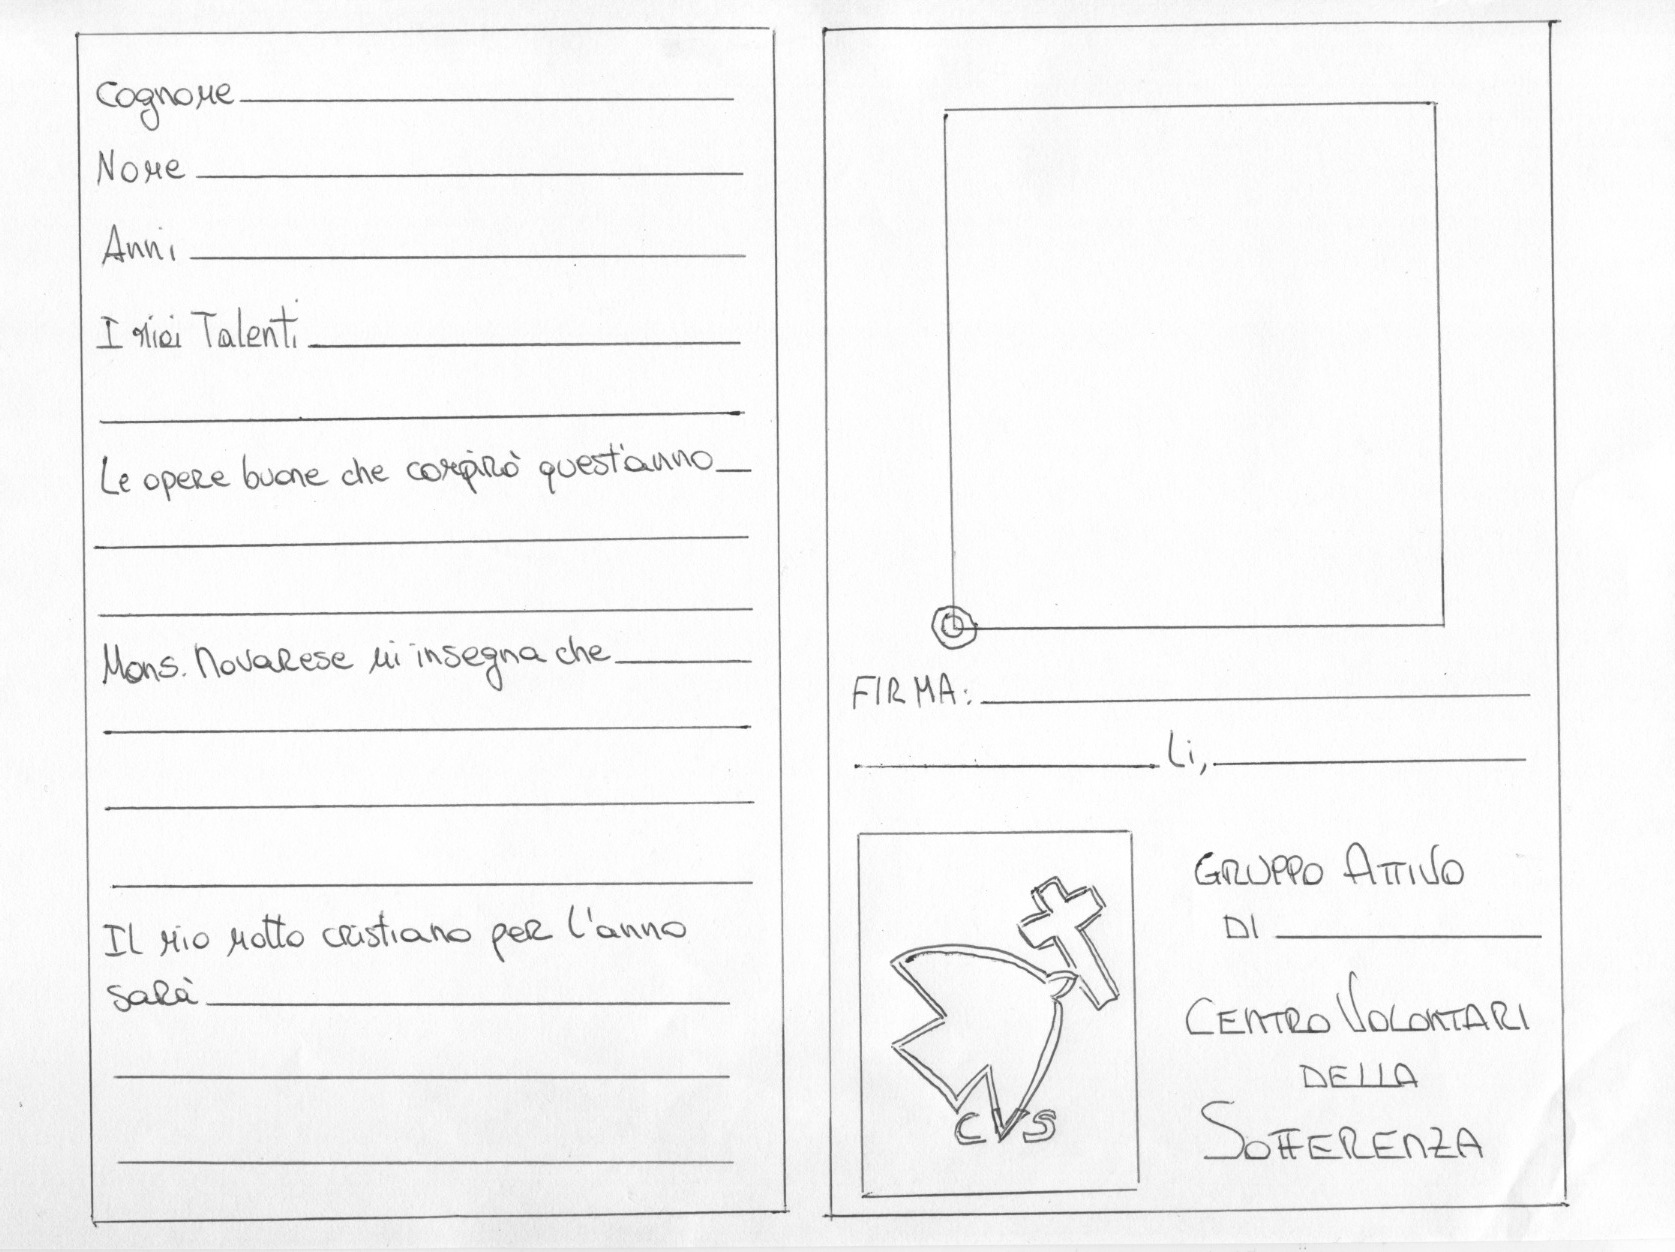 Cognome
Nome
Anni
I miei Talenti
Le opere buone che compirò quest'anno
Mons. Novarese mi insegna che
Il mio motto cristiano per l'anno
sarà
FIRMA:
Li,
GRUPPO ATTIVO
DI
CENTRO VOLONTARI
DELLA
SOFFERENZA
CVS